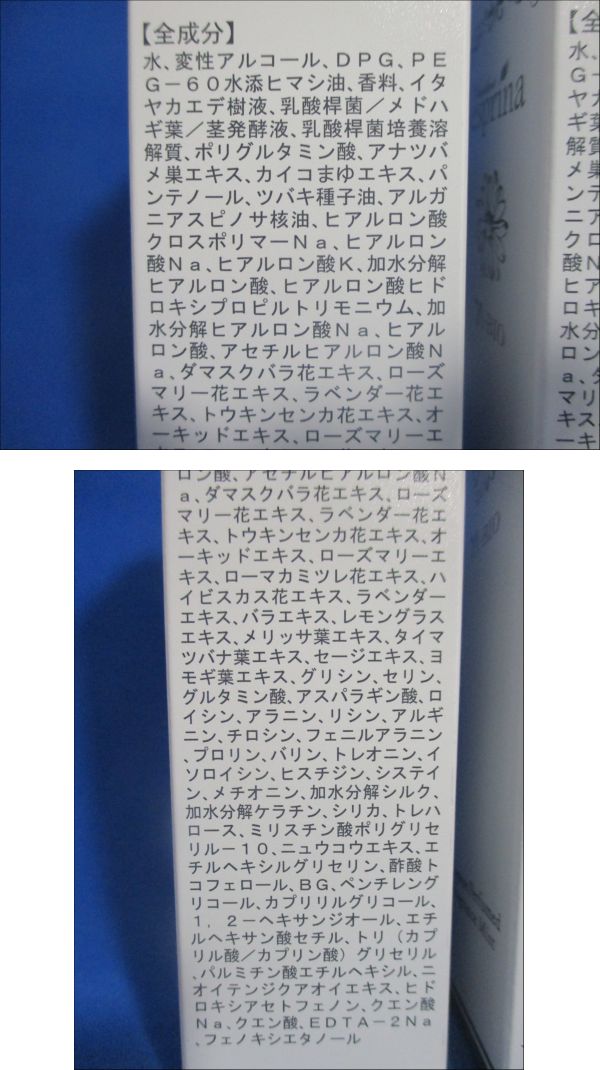 【全成分】
水、変性アルコール、DPG、PE
G-60水添ヒマシ油、香料、イタ
ヤカエデ樹液、乳酸桿菌／メドハ
ギ葉／茎発酵液、乳酸桿菌培養溶
解質、ポリグルタミン酸、アナツバ
メ巣エキス、カイコまゆエキス、パ
ンテノール、ツバキ種子油、アルガ
ニアスピノサ核油、ヒアルロン酸
クロスポリマーNa、ヒアルロン
酸Na、ヒアルロン酸K、加水分解
ヒアルロン酸、ヒアルロン酸ヒド
ロキシプロピルトリモニウム、加
水分解ヒアルロン酸Na、ヒアル
ロン酸、アセチルヒアルロン酸N
a、ダマスクバラ花エキス、ローズ
マリー花エキス、ラベンダー花エ
キス、トウキンセンカ花エキス、オ
ーキッドエキス、ローズマリーエ
ロン酸、アセチルヒアルロン酸N
a、ダマスクバラ花エキス、ローズ
マリー花エキス、ラベンダー花エ
キス、トウキンセンカ花エキス、オ
ーキッドエキス、ローズマリーエ
キス、ローマカミツレ花エキス、ハ
イビスカス花エキス、ラベンダー
エキス、バラエキス、レモングラス
エキス、メリッサ葉エキス、タイマ
ツバナ葉エキス、セージエキス、ヨ
モギ葉エキス、グリシン、セリン、
グルタミン酸、アスパラギン酸、ロ
イシン、アラニン、リシン、アルギ
ニン、チロシン、フェニルアラニン
、プロリン、バリン、トレオニン、イ
ソロイシン、ヒスチジン、システイ
ン、メチオニン、加水分解シルク、
加水分解ケラチン、シリカ、トレハ
ロース、ミリスチン酸ポリグリセ
リル-10、ニュウコウエキス、エ
チルヘキシルグリセリン、酢酸ト
コフェロール、BG、ペンチレング
リコール、カプリリルグリコール、
1，2-ヘキサンジオール、エチ
ルヘキサン酸セチル、トリ（カプ
リル酸／カプリン酸）グリセリル
、パルミチン酸エチルヘキシル、ニ
オイテンジクアオイエキス、ヒド
ロキシアセトフェノン、クエン酸
Na、クエン酸、EDTA-2Na
、フェノキシエタノール